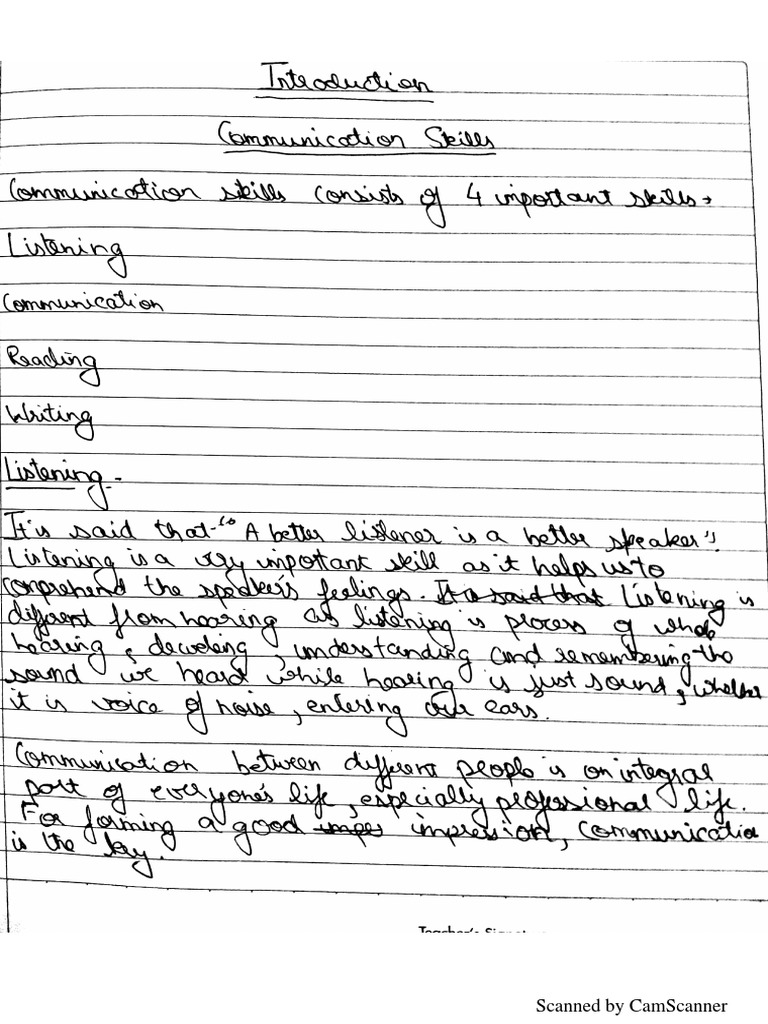 Introduction
Communication Skills
Communication skills consists of 4 important skills →
Listening
Communication
Reading
Writing
Listening -
It is said that - "A better listener is a better speaker".
Listening is a very important skill as it helps us to
comprehend the speaker's feelings. It is said that Listening is
different from hearing as listening is process of whole
hearing, decoding, understanding and remembering the
sound we heard while hearing is just sound, whether
it is voice of noise, entering our ears.
Communication between different people is an integral
part of everyone's life, especially professional life.
For forming a good impression, communication
is the key.
Teacher's
Scanned by CamScanner